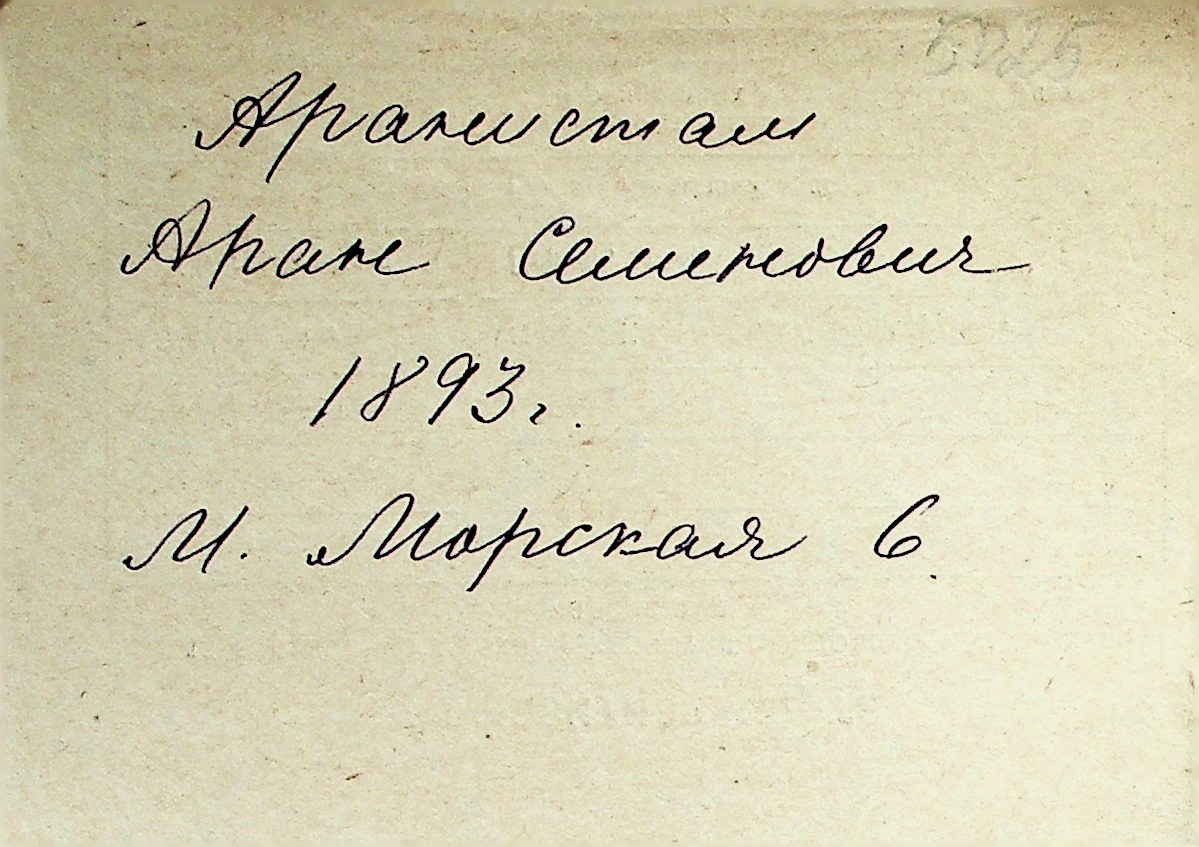 Аранистам
Аран Семенович
1893 г.
М. Морская 6.